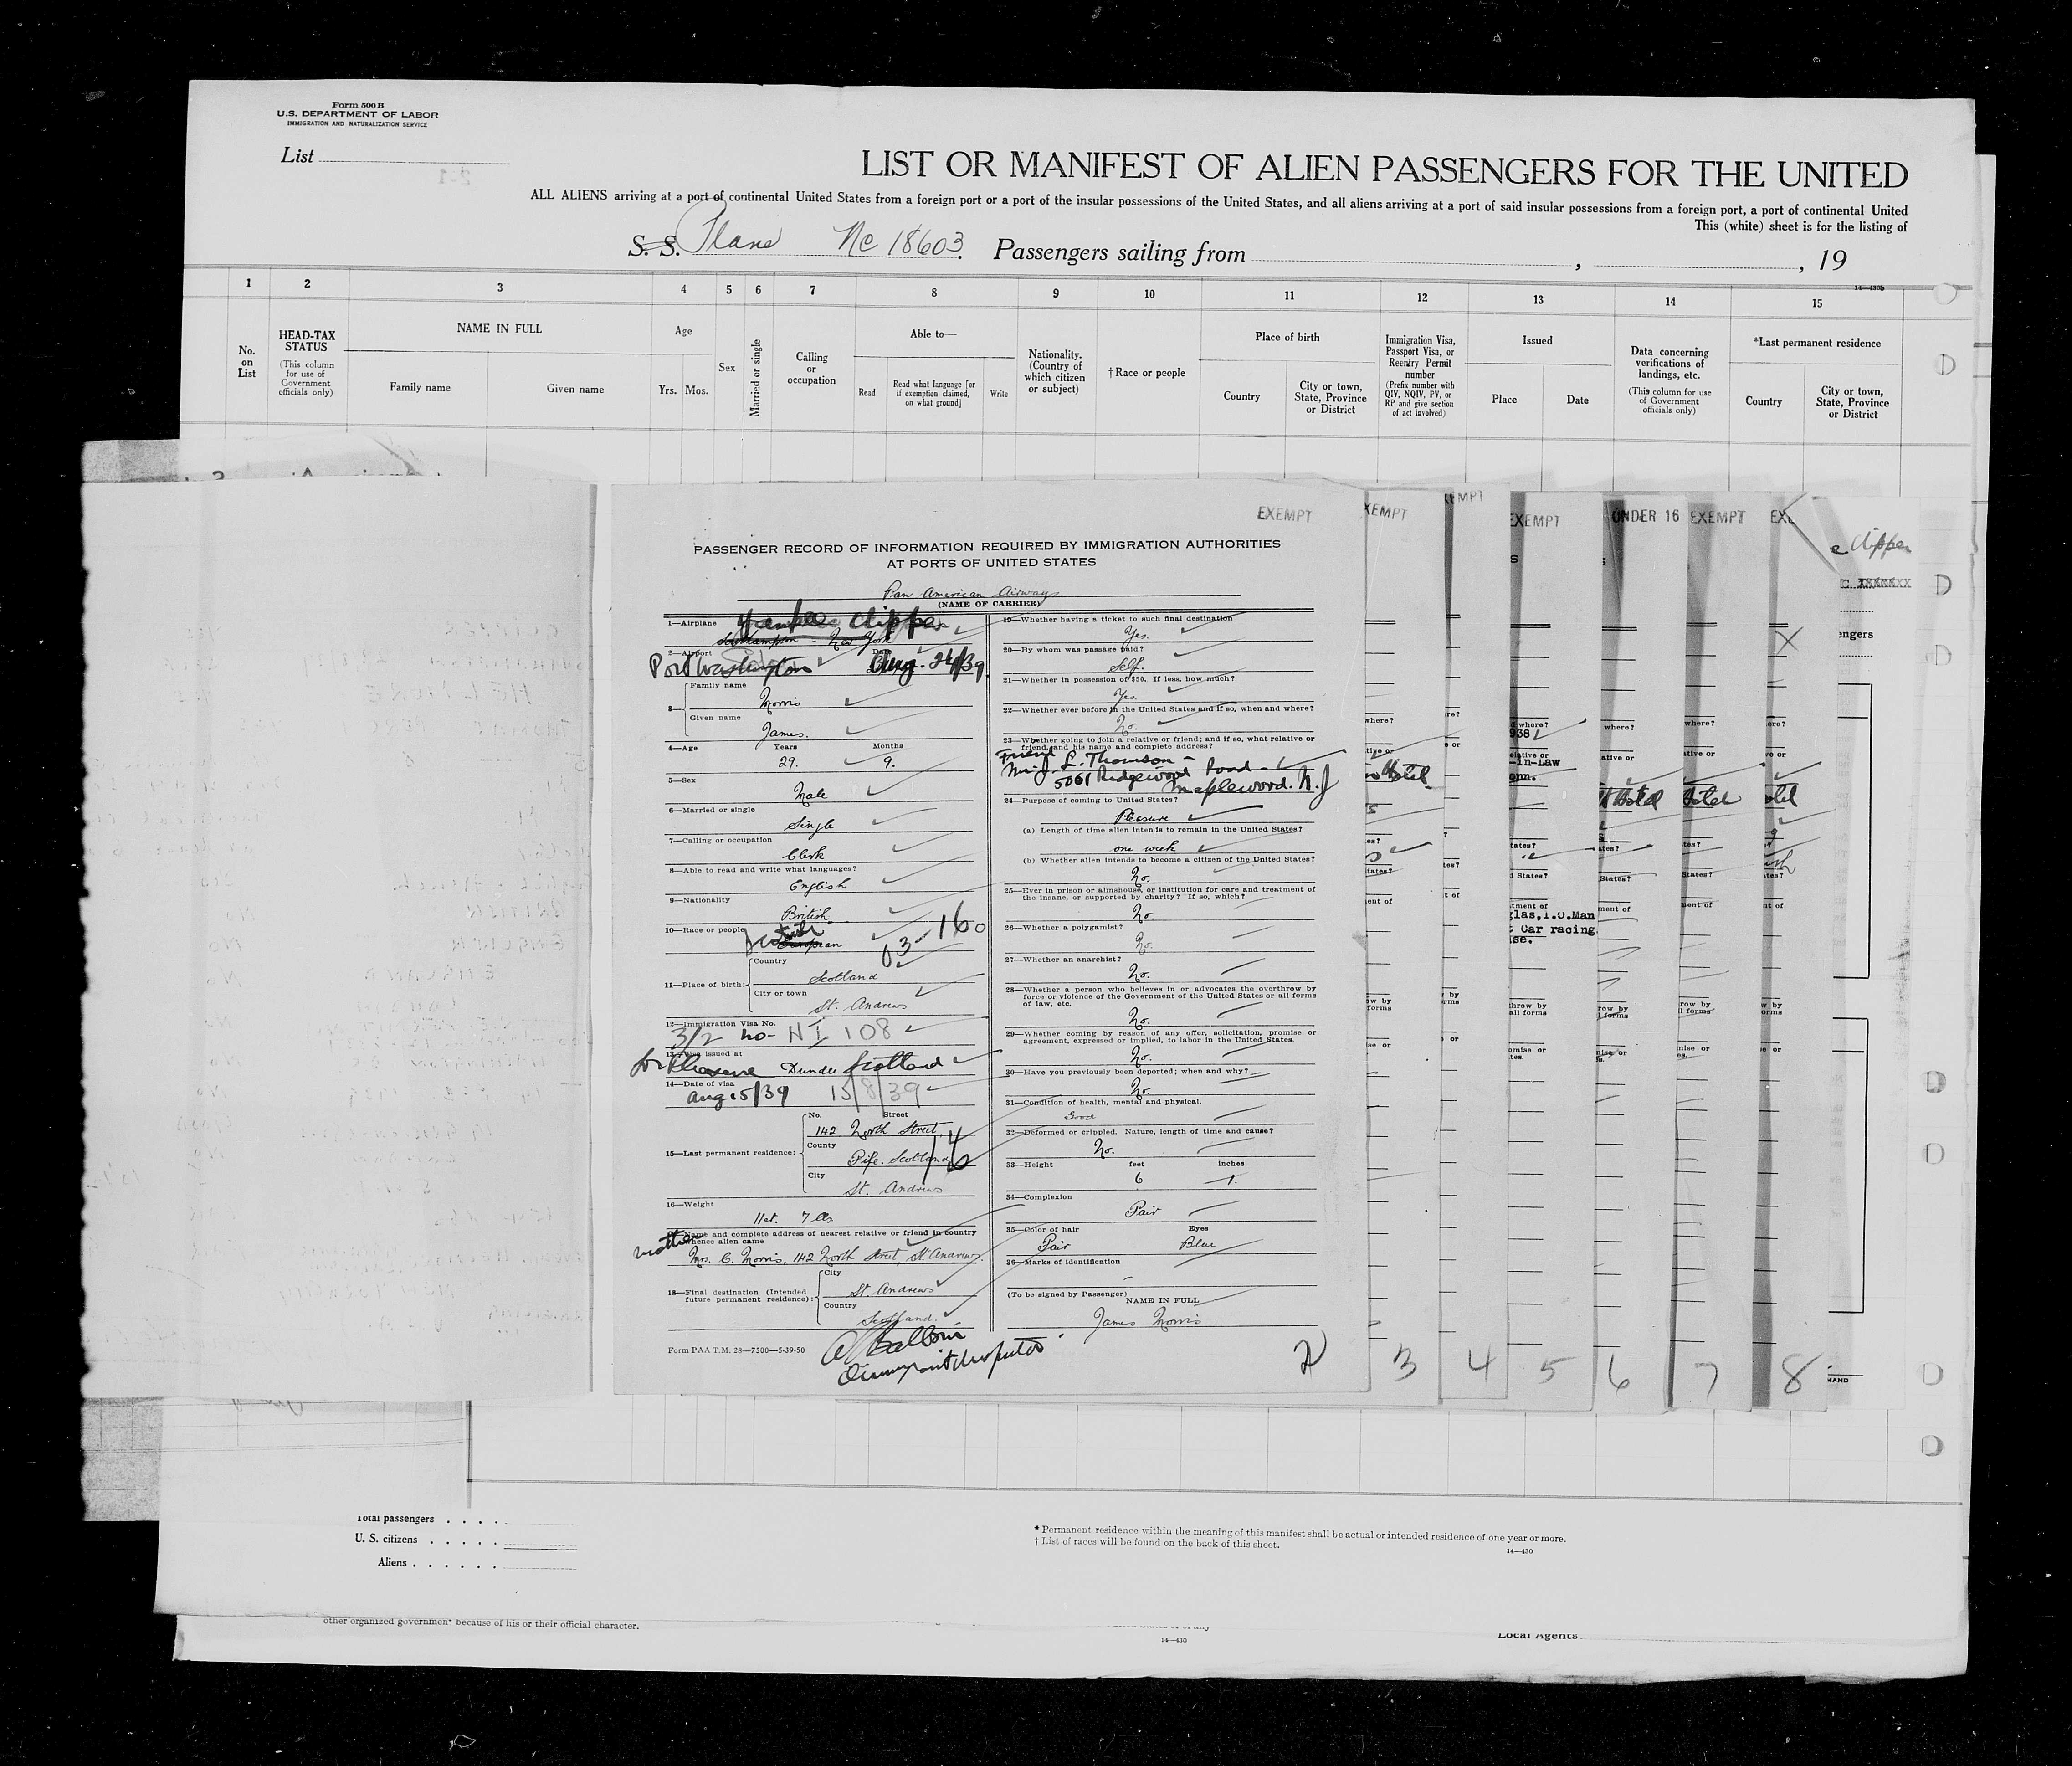 Form 500 B
U.S. DEPARTMENT OF LABOR
IMMIGRATION AND NATURALIZATION SERVICE
List
LIST OR MANIFEST OF ALIEN PASSENGERS FOR THE UNITED
ALL ALIENS arriving at a port of continental United States from a foreign port or a port of the insular possessions of the United States, and all aliens arriving at a port of said insular possessions from a foreign port, a port of continental United
This (white) sheet is for the listing of
S. S. Plane Nc 18603. Passengers sailing from , , 19
14—430b
1 2 3 4 5 6 7 8 9 10 11 12 13 14 15
No. on List
HEAD-TAX STATUS
(This column for use of Government officials only)
NAME IN FULL
Family name
Given name
Age
Yrs. Mos.
Sex
Married or single
Calling or occupation
Able to—
Read
Read what language [or if exemption claimed, on what ground]
Write
Nationality. (Country of which citizen or subject)
†Race or people
Place of birth
Country
City or town, State, Province or District
Immigration Visa, Passport Visa, or Reentry Permit number
(Prefix number with QIV, NQIV, PV, or RP and give section of act involved)
Issued
Place
Date
Data concerning verifications of landings, etc.
(This column for use of Government officials only)
*Last permanent residence
Country
City or town, State, Province or District
EXEMPT
PASSENGER RECORD OF INFORMATION REQUIRED BY IMMIGRATION AUTHORITIES
AT PORTS OF UNITED STATES
Pan American Airways
(NAME OF CARRIER)
1—Airplane Yankee Clipper
Southampton - New York
2—Airport Date
Port Washington Aug. 24/39.
3—
Family name
Morris
Given name
James.
4—Age Years Months
29. 9.
5—Sex
Male
6—Married or single
Single
7—Calling or occupation
Clerk
8—Able to read and write what languages?
English
9—Nationality
British
10—Race or people
Scotish
European
03-160
11—Place of birth:
Country
Scotland
City or town
St. Andrews
12—Immigration Visa No.
3/2 no- NI 108
13—Visa issued at
for Pleasure Dundee Scotland
14—Date of visa
Aug 15/39 15/8/39
15—Last permanent residence:
No. Street
142 North Street
County
Fife. Scotland
City
St. Andrews
16—Weight
11st. 7 lbs
17—Name and complete address of nearest relative or friend in country
whence alien came
mother
Mrs. C. Morris, 142 North Street, St. Andrews.
18—Final destination (Intended future permanent residence):
City
St. Andrews
Country
Scotland.
Form PAA T.M. 28—7500—5-39-50
19—Whether having a ticket to such final destination
Yes.
20—By whom was passage paid?
Self.
21—Whether in possession of $50. If less, how much?
Yes
22—Whether ever before in the United States and if so, when and where?
No.
23—Whether going to join a relative or friend; and if so, what relative or
friend, and his name and complete address?
Friend
Mr J. L. Thomson -
5061 Ridgewood Road -
Maplewood. N.J
24—Purpose of coming to United States?
Pleasure
(a) Length of time alien intends to remain in the United States?
one week
(b) Whether alien intends to become a citizen of the United States?
No.
25—Ever in prison or almshouse, or institution for care and treatment of
the insane, or supported by charity? If so, which?
No.
26—Whether a polygamist?
No.
27—Whether an anarchist?
No.
28—Whether a person who believes in or advocates the overthrow by
force or violence of the Government of the United States or all forms
of law, etc.
No.
29—Whether coming by reason of any offer, solicitation, promise or
agreement, expressed or implied, to labor in the United States.
No.
30—Have you previously been deported; when and why?
No.
31—Condition of health, mental and physical.
Good
32—Deformed or crippled. Nature, length of time and cause?
No.
33—Height feet inches
6 1.
34—Complexion
Fair
35—Color of hair Eyes
Fair Blue
36—Marks of identification
(To be signed by Passenger)
NAME IN FULL
James Morris
2 3 4 5 6 7 8
EXEMPT
EXEMPT
UNDER 16 EXEMPT
Clipper
-in-Law
Hotel
Car racing
Total passengers
U. S. citizens
Aliens
* Permanent residence within the meaning of this manifest shall be actual or intended residence of one year or more.
† List of races will be found on the back of this sheet.
14—430
other organized government because of his or their official character.
14—430
Local Agents